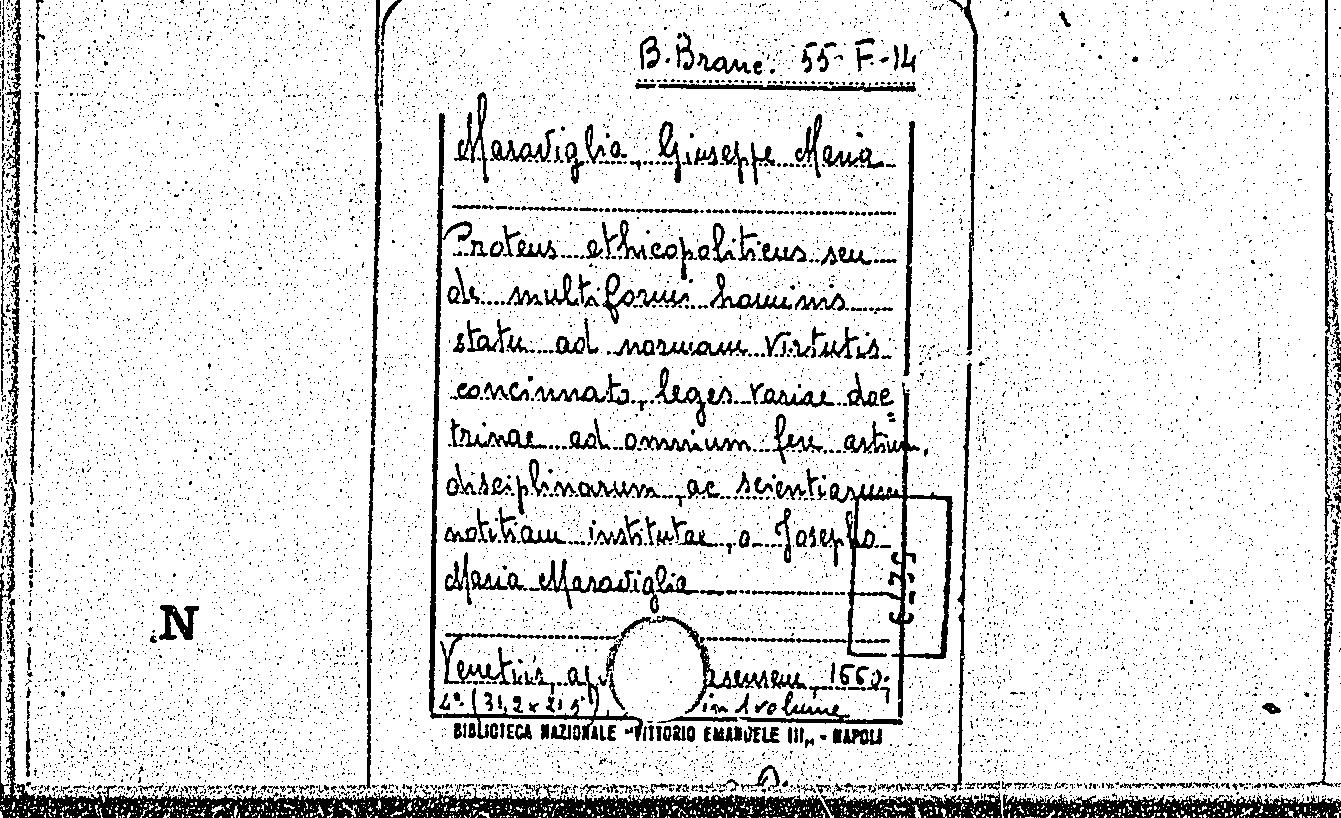 B. Branc. 55-F-14
Maraviglia, Giuseppe Maria
Proteus ethicopoliticus seu
de multiformi hominis
statu ad normam virtutis
concinnato, leges variae doc=
trinae ad omnium fere artium,
disciplinarum, ac scientiarum
notitiam institutae, a Josepho
Maria Maraviglia
N
Venetiis, 1660;
4° (31,2 x 21,5), in 1 volume
BIBLIOTECA NAZIONALE "VITTORIO EMANUELE III„ - NAPOLI